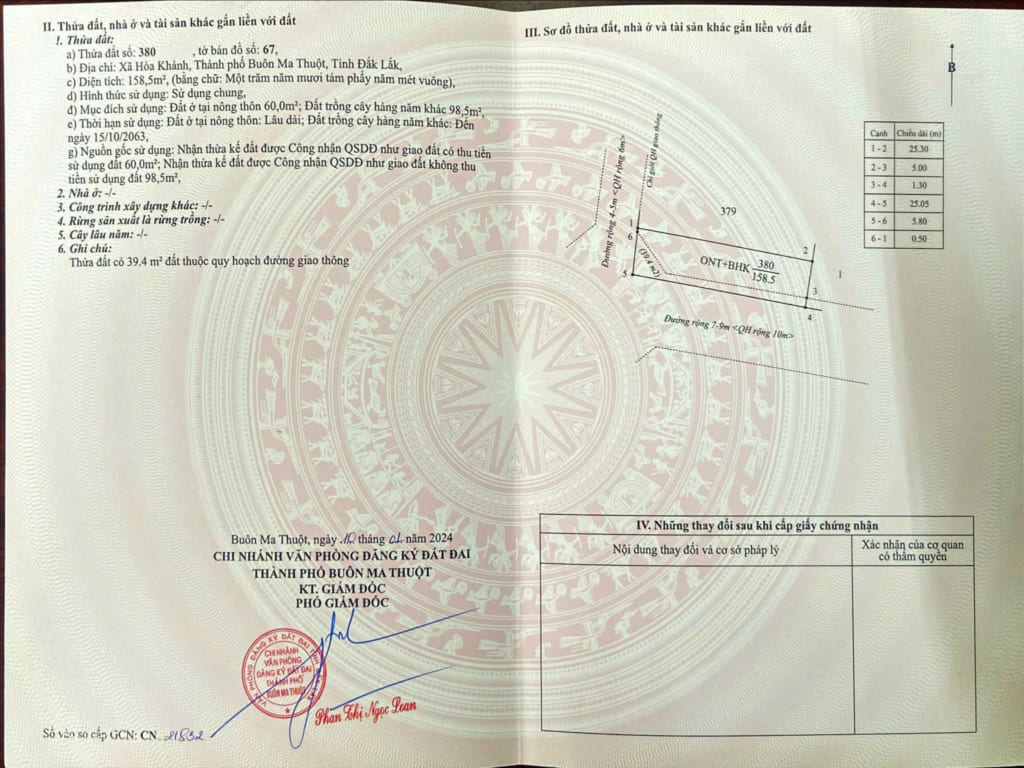 II. Thửa đất, nhà ở và tài sản khác gắn liền với đất
1. Thửa đất:
a) Thửa đất số: 380 , tờ bản đồ số: 67,
b) Địa chỉ: Xã Hòa Khánh, Thành phố Buôn Ma Thuột, Tỉnh Đắk Lắk,
c) Diện tích: 158,5m², (bằng chữ: Một trăm năm mươi tám phẩy năm mét vuông),
d) Hình thức sử dụng: Sử dụng chung,
đ) Mục đích sử dụng: Đất ở tại nông thôn 60,0m²; Đất trồng cây hàng năm khác 98,5m²,
e) Thời hạn sử dụng: Đất ở tại nông thôn: Lâu dài; Đất trồng cây hàng năm khác: Đến
ngày 15/10/2063,
g) Nguồn gốc sử dụng: Nhận thừa kế đất được Công nhận QSDĐ như giao đất có thu tiền
sử dụng đất 60,0m²; Nhận thừa kế đất được Công nhận QSDĐ như giao đất không thu
tiền sử dụng đất 98,5m²,
2. Nhà ở: -/-
3. Công trình xây dựng khác: -/-
4. Rừng sản xuất là rừng trồng: -/-
5. Cây lâu năm: -/-
6. Ghi chú:
Thửa đất có 39.4 m² đất thuộc quy hoạch đường giao thông
Buôn Ma Thuột, ngày tháng 01 năm 2024
CHI NHÁNH VĂN PHÒNG ĐĂNG KÝ ĐẤT ĐAI
THÀNH PHỐ BUÔN MA THUỘT
KT. GIÁM ĐỐC
PHÓ GIÁM ĐỐC
VĂN PHÒNG ĐĂNG KÝ ĐẤT ĐAI TỈNH
CHI NHÁNH
VĂN PHÒNG
ĐĂNG KÝ ĐẤT ĐAI
THÀNH PHỐ
BUÔN MA THUỘT
Phan Thị Ngọc Loan
Số vào sổ cấp GCN: CN 21832
III. Sơ đồ thửa đất, nhà ở và tài sản khác gắn liền với đất
B
Cạnh Chiều dài (m)
1 - 2 25.30
2 - 3 5.00
3 - 4 1.30
4 - 5 25.05
5 - 6 5.80
6 - 1 0.50
Đường rộng 4-5m <QH rộng 6m>
Chỉ giới QH giao thông
379
1
2
6
(39.4 m2)
ONT+BHK 380
158.5
1
5
3
4
Đường rộng 7-9m <QH rộng 10m>
IV. Những thay đổi sau khi cấp giấy chứng nhận
Nội dung thay đổi và cơ sở pháp lý
Xác nhận của cơ quan
có thẩm quyền